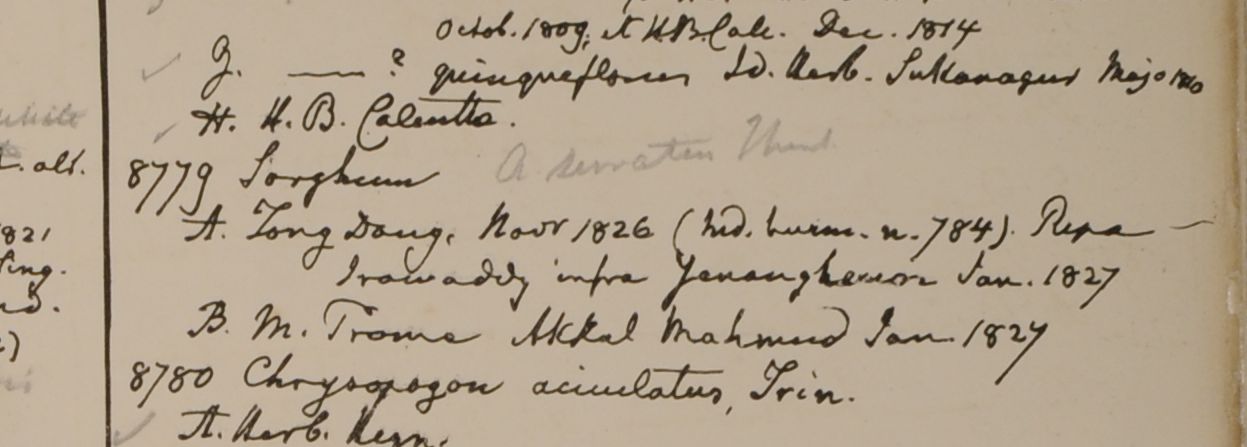 Octob. 1809, et H.B. Calc. Dec. 1814
G. —— ? quinqueflorus Id. Herb. Sukanagur Majo 1810
H. H. B. Calcutta.
8779 Sorghum A serratus Thunb
A. Tong Dong. Novr 1826 (hd. burm. n. 784). Ripa
Irawaddy infra Yenangheun Jan. 1827
B. M. Trome Akkal Mahmud Jan. 1827
8780 Chrysopogon aciculatus, Trin.
A. Herb. Heyn.
white
. alt.
1821
ing.